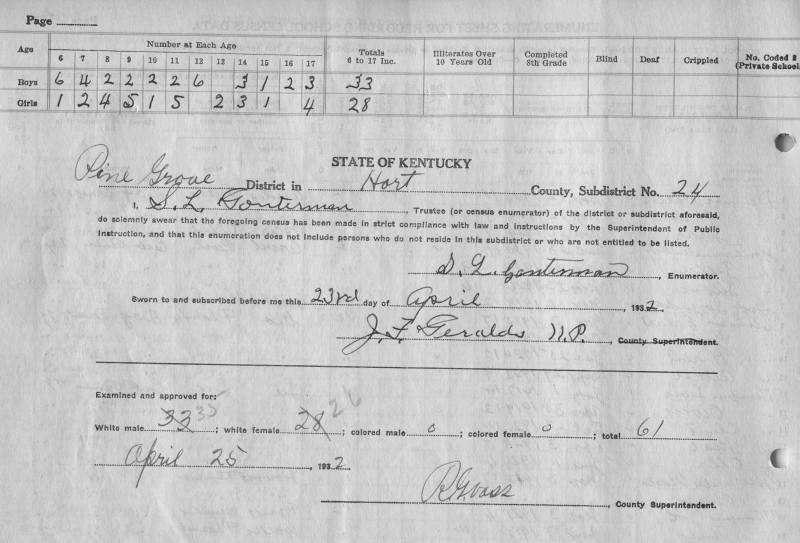 Page
Age Number at Each Age Totals 6 to 17 Inc. Illiterates Over 10 Years Old Completed 8th Grade Blind Deaf Crippled No. Coded 2 (Private School
6 7 8 9 10 11 12 13 14 15 16 17
Boys 6 4 2 2 2 2 6 3 1 2 3 33
Girls 1 2 4 5 1 5 2 3 1 4 28
STATE OF KENTUCKY
Pine Grove District in Hart County, Subdistrict No. 24
I, S. L. Gonterman, Trustee (or census enumerator) of the district or subdistrict aforesaid,
do solemnly swear that the foregoing census has been made in strict compliance with law and instructions by the Superintendent of Public
Instruction, and that this enumeration does not include persons who do not reside in this subdistrict or who are not entitled to be listed.
S. L. Gonterman, Enumerator.
Sworn to and subscribed before me this 23rd day of April, 1932.
J. F. Geralds N.P., County Superintendent.
Examined and approved for:
White male 33 35; white female 28 26; colored male 0; colored female 0; total 61
April 25, 1932
County Superintendent.